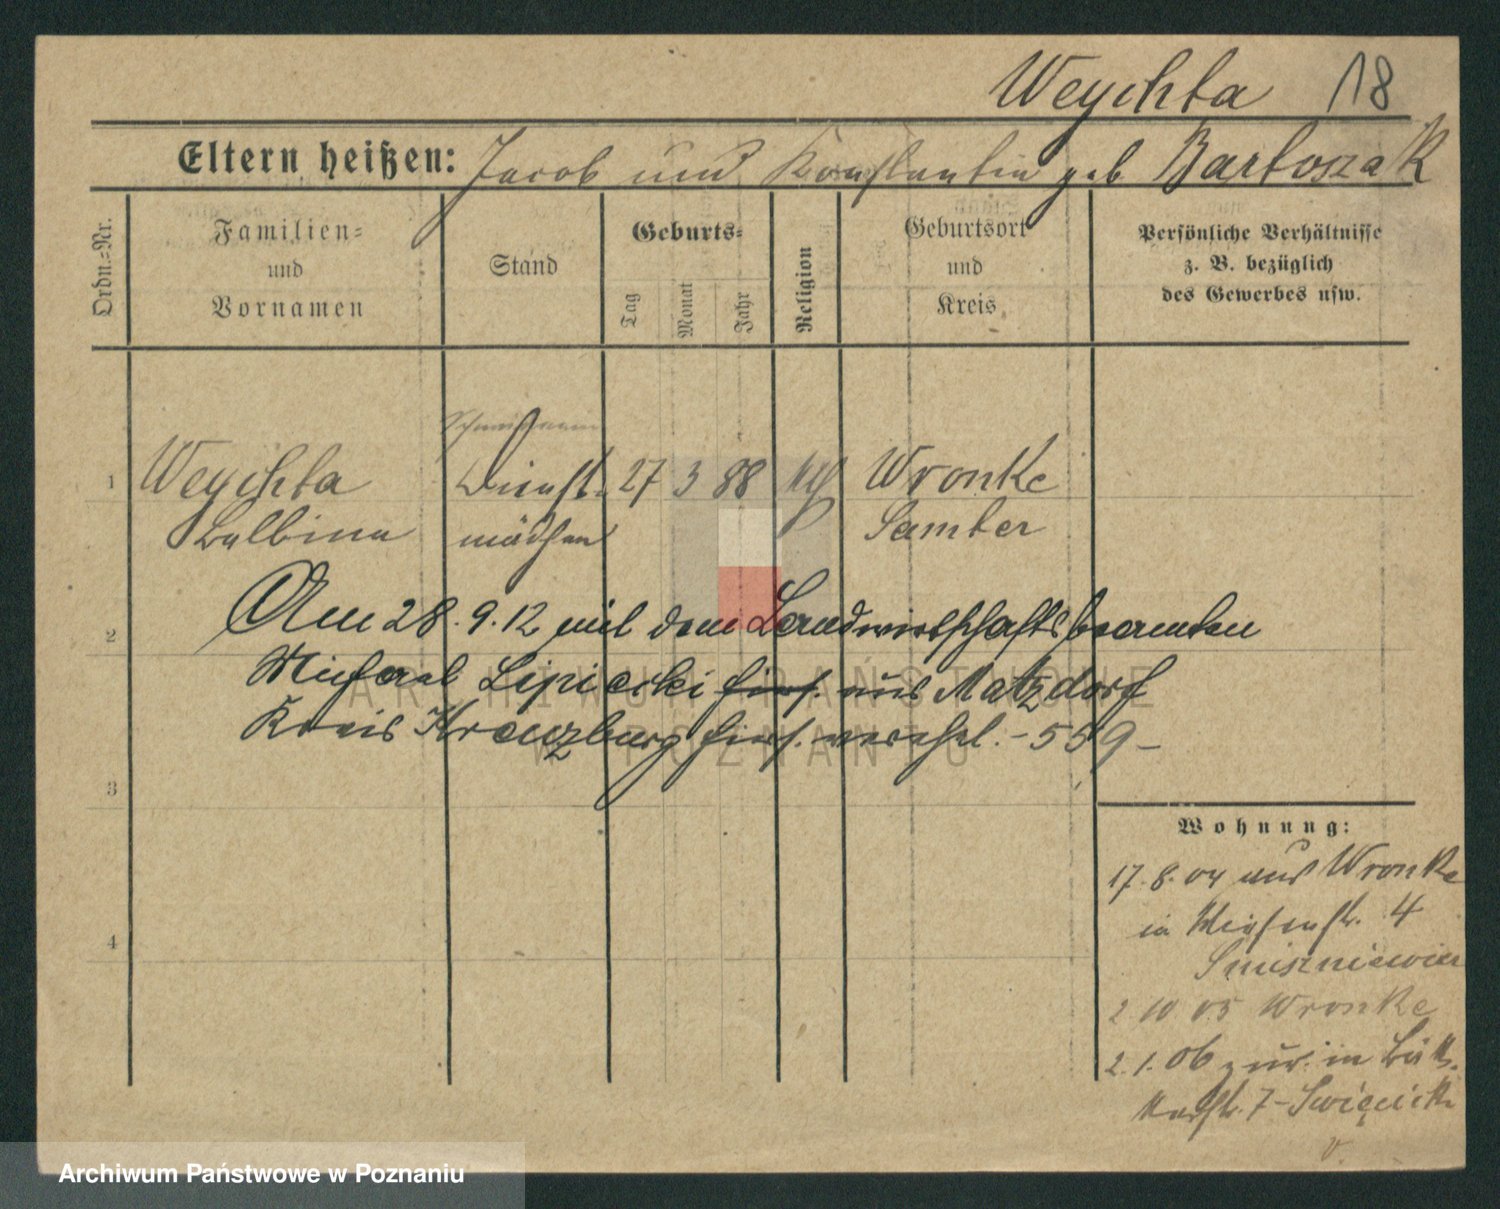 Weychta 18
Eltern heißen: Jacob und Konstantin geb Bartoszak
Ordn.-Nr.
Familien-
und
Vornamen
Stand
Geburts-
Tag
Monat
Jahr
Religion
Geburtsort
und
Kreis
Persönliche Verhältnisse
z. B. bezüglich
des Gewerbes usw.
1 Weychta Dienst- 27 3 88 kth Wronke
Balbina mädchen Samter
Am 28.9.12 mit dem Landwirtschaftsbeamten
2
Michael Lipiecki hier. aus Matzdorf
Kreis Kreuzburg hier. verehel. - 559 -
3
Wohnung:
17.8.04 aus Wronke
in Wiesenstr. 4
2 10 05 Wronke
4
2.1.06 zur. in
7 -
ARCHIWUM PAŃSTWOWE
W POZNANIU
Archiwum Państwowe w Poznaniu